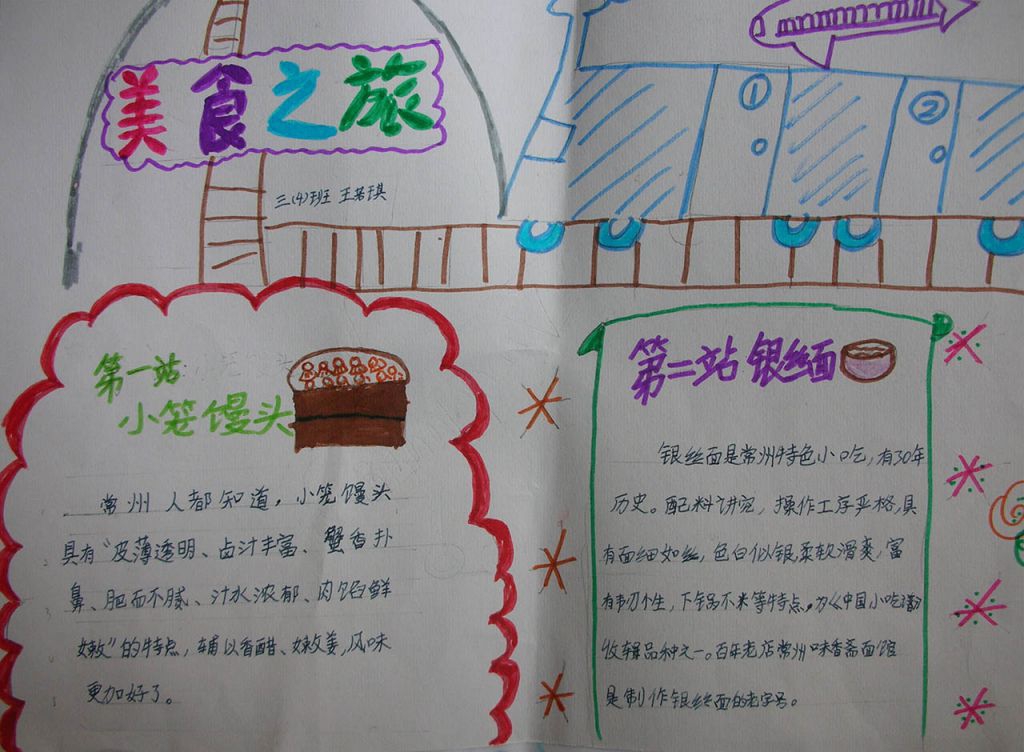 美食之旅
三(4)班 王若琪
①
②
第一站
小笼馒头
常州人都知道，小笼馒头
具有“皮薄透明、卤汁丰富、蟹香扑
鼻、肥而不腻、汁水浓郁、肉馅鲜
嫩”的特点，辅以香醋、嫩姜，风味
更加好了。
第二站 银丝面
银丝面是常州特色小吃，有30年
历史。配料讲究，操作工序严格，具
有面细如丝，色白似银，柔软滑爽，富
有韧性，下锅不米等特点。为《中国小吃谱》
收辑品种之一。百年老店常州味香斋面馆
是制作银丝面的老字号。